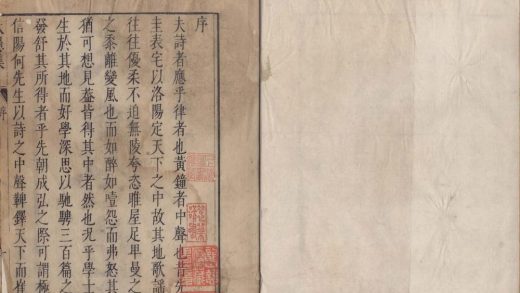 序
夫詩者應乎律者也黃鐘者中聲也昔先
圭表宅以洛陽定天下之中故其地歌謡
往往優柔不迫無陵夸恣睢屋足卑曼之
之黍離變風也而如醉如噎怨而弗怒其
猶可想見葢皆得其中者然也況乎學士
生於其地而好學深思以馳騁三百篇之
發舒其所得者乎先朝成弘之際可謂極
信陽何先生以詩之中聲鞞鐸天下而崔
集 序